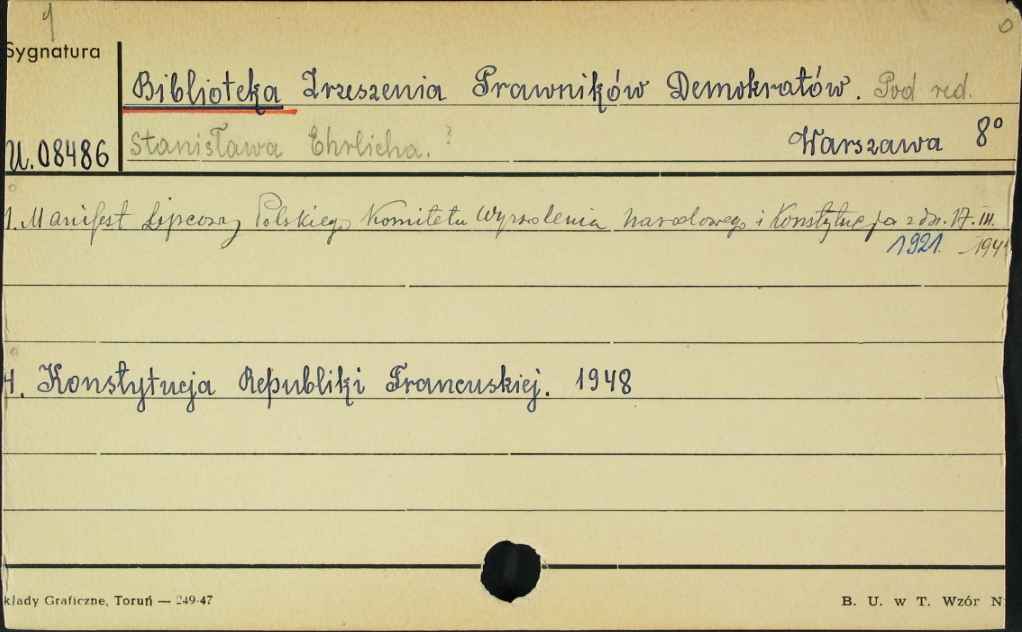 Sygnatura
Biblioteka Zrzeszenia Prawników Demokratów. Pod red.
U.08486 Stanisława Ehrlicha.? Warszawa 8°
1. Manifest Lipcowy Polskiego Komitetu Wyzwolenia Narodowego i Konstytucja z dn. 17. III.
1921.
4. Konstytucja Republiki Francuskiej. 1948
kłady Graficzne, Toruń — 249-47 B. U. w T. Wzór N